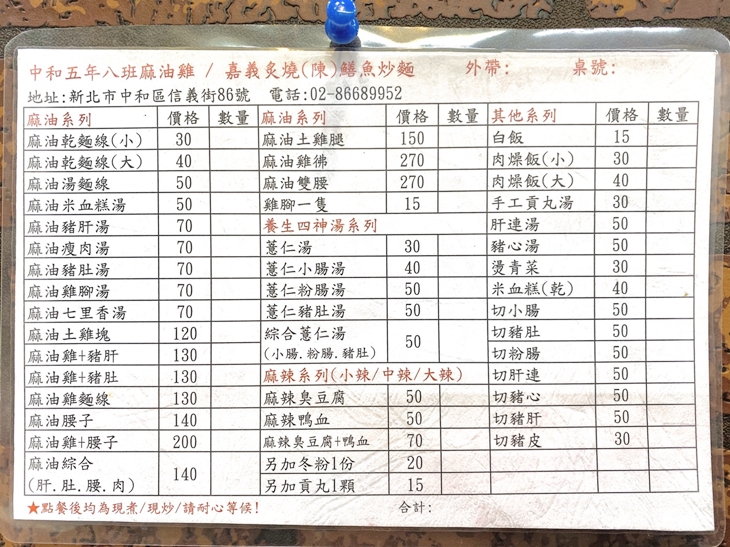 中和五年八班麻油雞 / 嘉義炙燒(陳)鱔魚炒麵 外帶: 桌號:
地址:新北市中和區信義街86號 電話:02-86689952
麻油系列 價格 數量 麻油系列 價格 數量 其他系列 價格 數量
麻油乾麵線(小) 30 麻油土雞腿 150 白飯 15
麻油乾麵線(大) 40 麻油雞佛 270 肉燥飯(小) 30
麻油湯麵線 50 麻油雙腰 270 肉燥飯(大) 40
麻油米血糕湯 50 雞腳一隻 15 手工貢丸湯 30
麻油豬肝湯 70 養生四神湯系列 肝連湯 50
麻油瘦肉湯 70 薏仁湯 30 豬心湯 50
麻油豬肚湯 70 薏仁小腸湯 40 燙青菜 30
麻油雞腳湯 70 薏仁粉腸湯 50 米血糕(乾) 40
麻油七里香湯 70 薏仁豬肚湯 50 切小腸 50
麻油土雞塊 120 綜合薏仁湯 50 切豬肚 50
麻油雞+豬肝 130 (小腸.粉腸.豬肚) 切粉腸 50
麻油雞+豬肚 130 麻辣系列(小辣/中辣/大辣) 切肝連 50
麻油雞麵線 130 麻辣臭豆腐 50 切豬心 50
麻油腰子 140 麻辣鴨血 50 切豬肝 50
麻油雞+腰子 200 麻辣臭豆腐+鴨血 70 切豬皮 30
麻油綜合 140 另加冬粉1份 20
(肝.肚.腰.肉) 另加貢丸1顆 15
★點餐後均為現煮/現炒/請耐心等候! 合計: